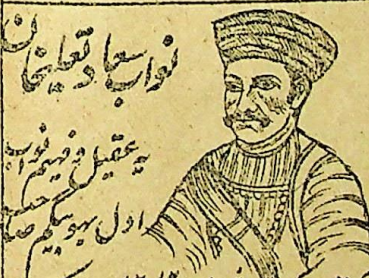 نواب سعادتعلیخان
یہ عقیل و فہیم نواب
اول بہو بیگم صاحبہ